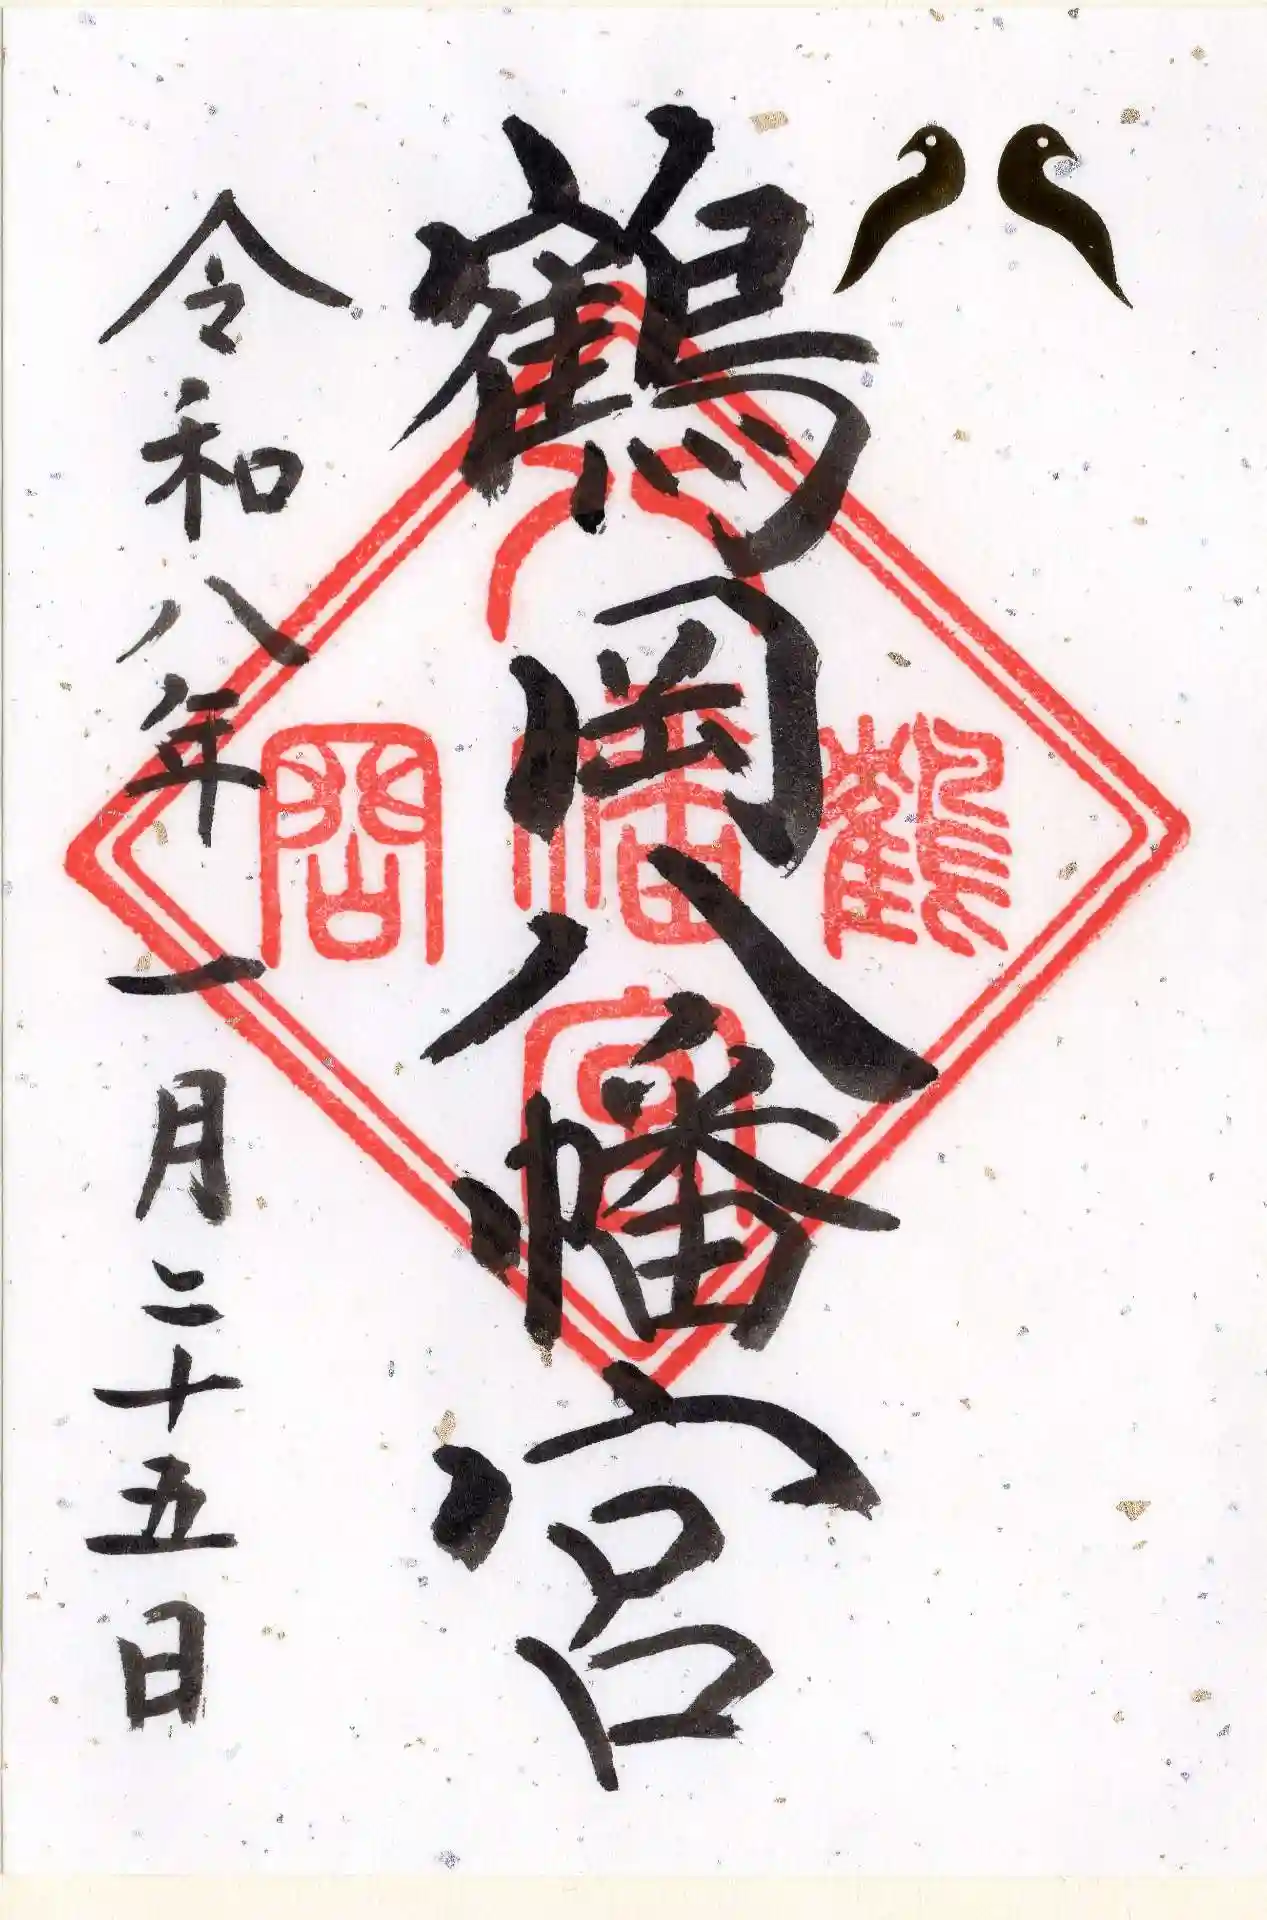 鶴岡八幡宮
令和八年一月二十五日
鶴
八幡宮
岡